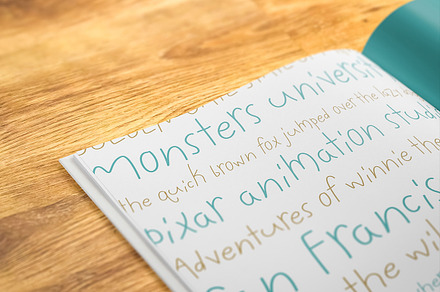 Monsters universit
the quick brown fox jumped over the lazy
pixar animation stud
Adventures of winnie the
San Francis
the wil